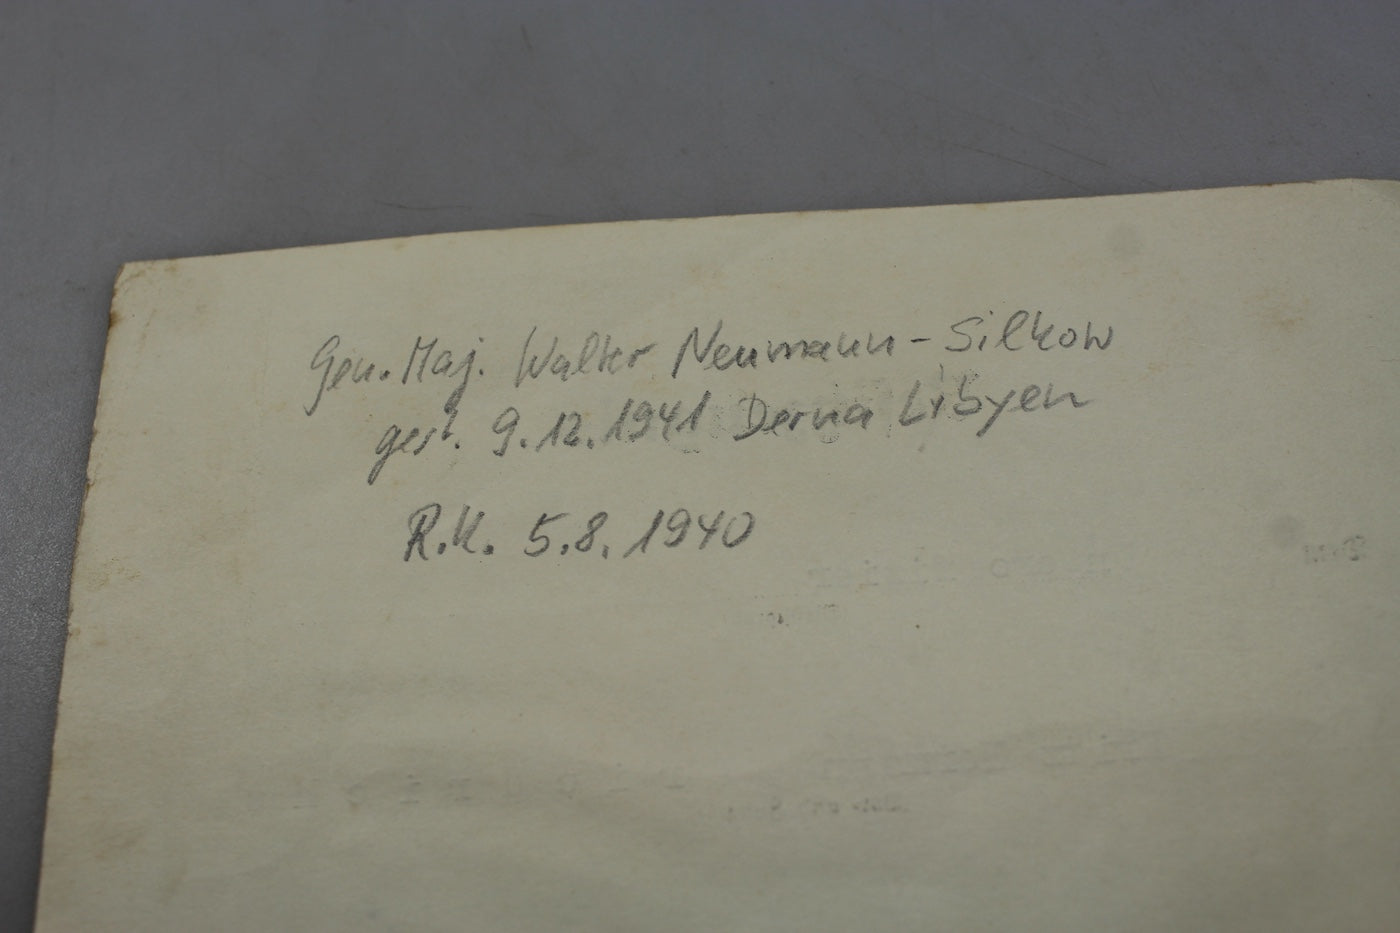 Gen. Maj. Walter Neumann-Silkow
gest. 9.12.1941 Derna Libyen
R.K. 5.8.1940